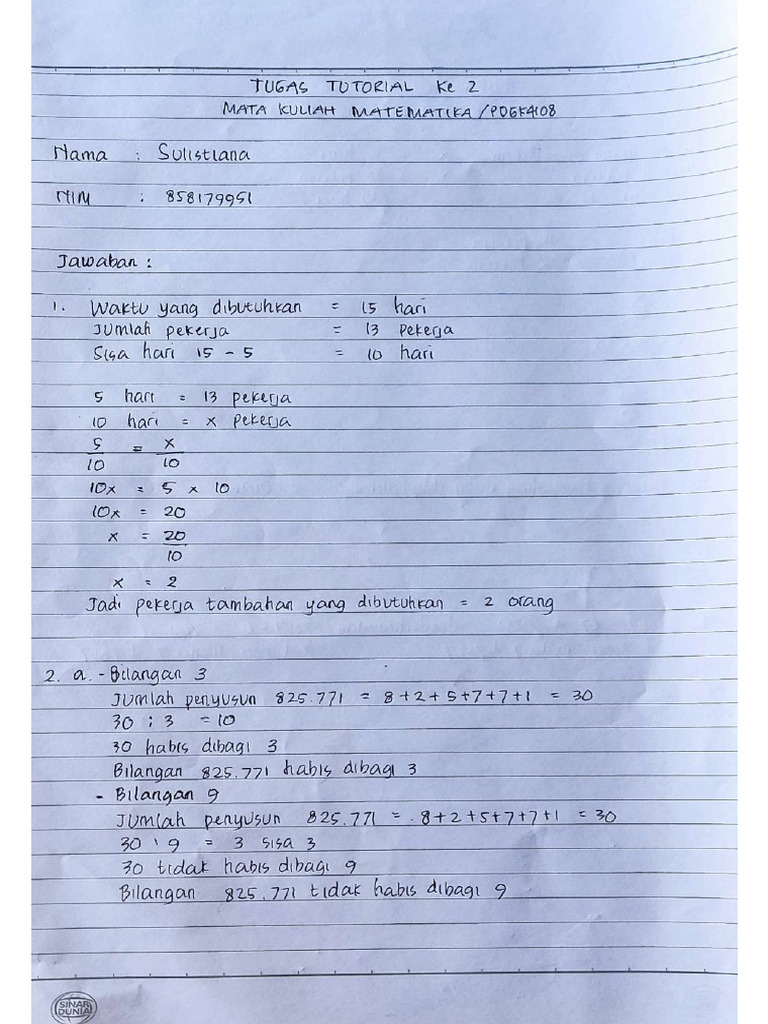 TUGAS TUTORIAL Ke 2
MATA KULIAH MATEMATIKA/PDGK4108
Nama : Sulistiana
NIM : 858179951
Jawaban :
1. Waktu yang dibutuhkan = 15 hari
Jumlah pekerja = 13 pekerja
Sisa hari 15 - 5 = 10 hari
5 hari = 13 pekerja
10 hari = x pekerja
5/10 = x/10
10x = 5 x 10
10x = 20
x = 20/10
x = 2
Jadi pekerja tambahan yang dibutuhkan = 2 orang
2. a. - Bilangan 3
Jumlah penyusun 825.771 = 8+2+5+7+7+1 = 30
30 : 3 = 10
30 habis dibagi 3
Bilangan 825.771 habis dibagi 3
- Bilangan 9
Jumlah penyusun 825.771 = 8+2+5+7+7+1 = 30
30 : 9 = 3 sisa 3
30 tidak habis dibagi 9
Bilangan 825.771 tidak habis dibagi 9
SINAR
DUNIA